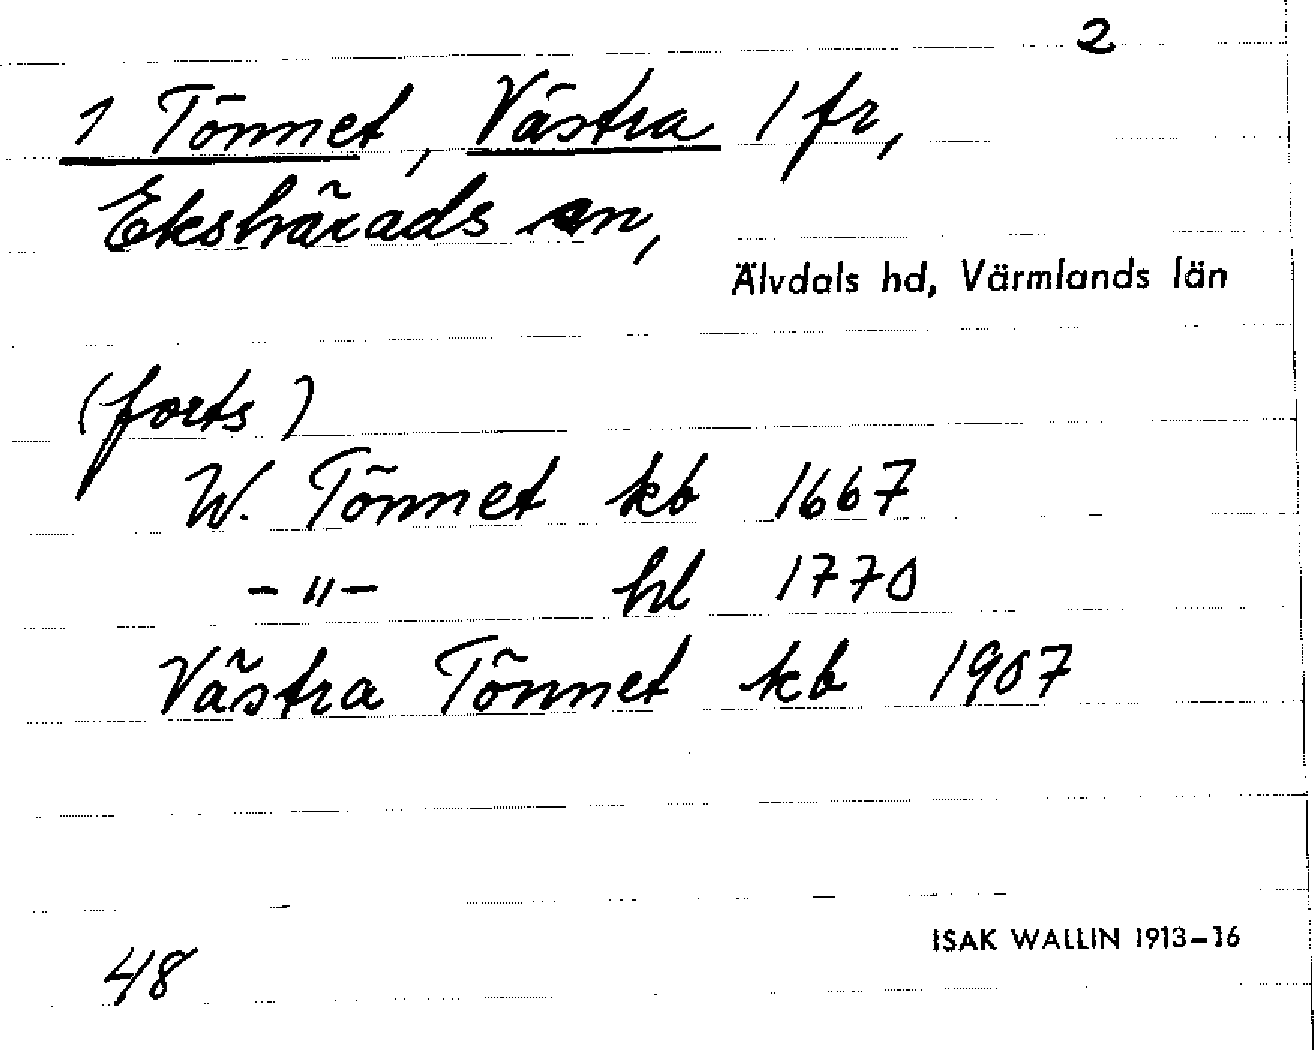 2
1 Tönnet, Västra 1 fr,
Ekshärads sn,
Älvdals hd, Värmlands län
(forts)
W. Tönnet kb 1667
-"- hl 1770
Västra Tönnet kb 1907
ISAK WALLIN 1913-16
48